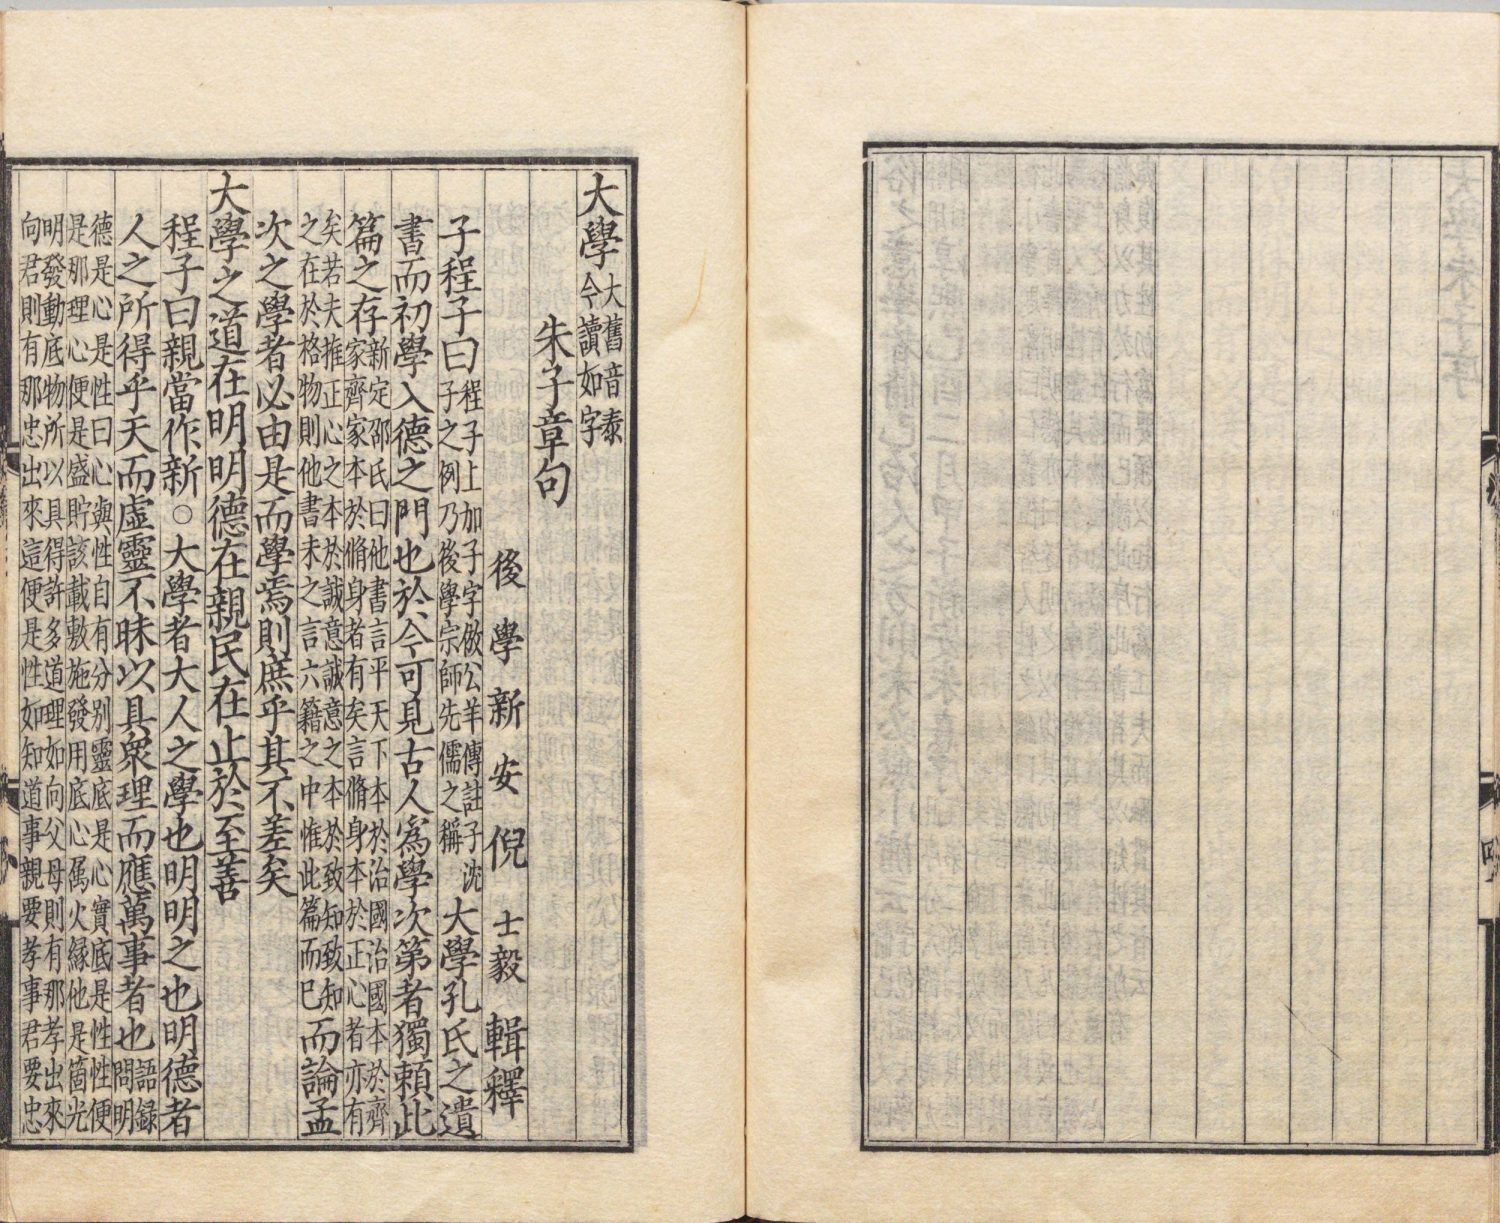 大學大舊音泰
今讀如字
朱子章句
後學新安倪 士毅 輯釋
子程子曰程子上加子字倣公羊傳註子沈
子之例乃後學宗師先儒之稱大學孔氏之遺
書而初學入德之門也於今可見古人爲學次第者獨賴此
篇之存新定邵氏曰他書言平天下本於治國治國本於齊
家齊家本於脩身者有矣言脩身本於正心者亦有
矣若夫推正心之本於誠意誠意之本於致知致知
之在於格物則他書未之言六籍之中惟此篇而已而論孟
次之學者必由是而學焉則庶乎其不差矣
大學之道在明明德在親民在止於至善
程子曰親當作新○大學者大人之學也明明之也明德者
人之所得乎天而虛靈不昧以具衆理而應萬事者也語録
問明
德是心是性曰心與性自有分别靈底是心實底是性性便
是那理心便是盛貯該載敷施發用底心屬火緣他是箇光
明發動底物所以具得許多道理如向父母則有那孝出來
向君則有那忠出來這便是性如知道事親要孝事君要忠